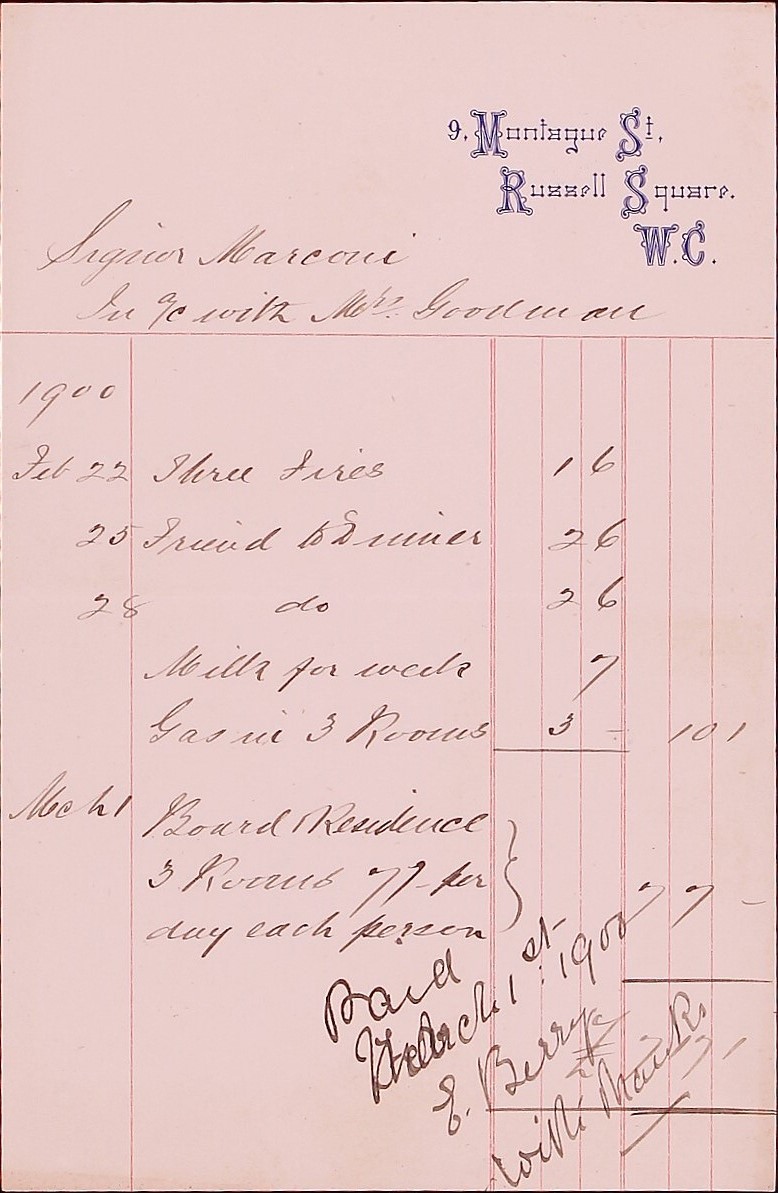 9, Montague St,
Russell Square.
W.C.
Signor Marconi
In a/c with Mrs. Goodman
1900
Feb 22 Three Fires 1 6
25 Friend to Dinner 2 6
28 do 2 6
Milk for week 7
Gas in 3 Rooms 3 - 10 1
Mch 1 Board Residence
3 Rooms 7/- per } 7 7 -
day each person
7 1
Paid
March 1st. 1900
E. Berry
with thanks